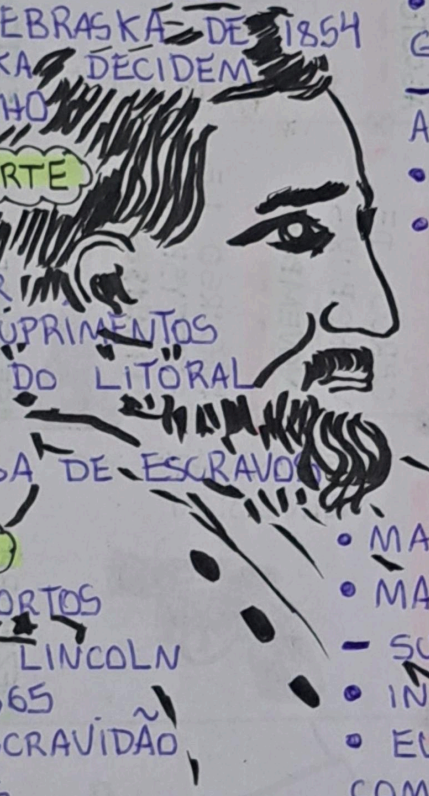 EBRASKA DE 1854
KA DECIDEM
HO
RTE
R
UPRIMENTOS
DO LITORAL
SA DE ESCRAVOS
ORTOS
LINCOLN
65
CRAVIDÃO
G
A
• MA
• MA
– SU
• IN
• EU
COM